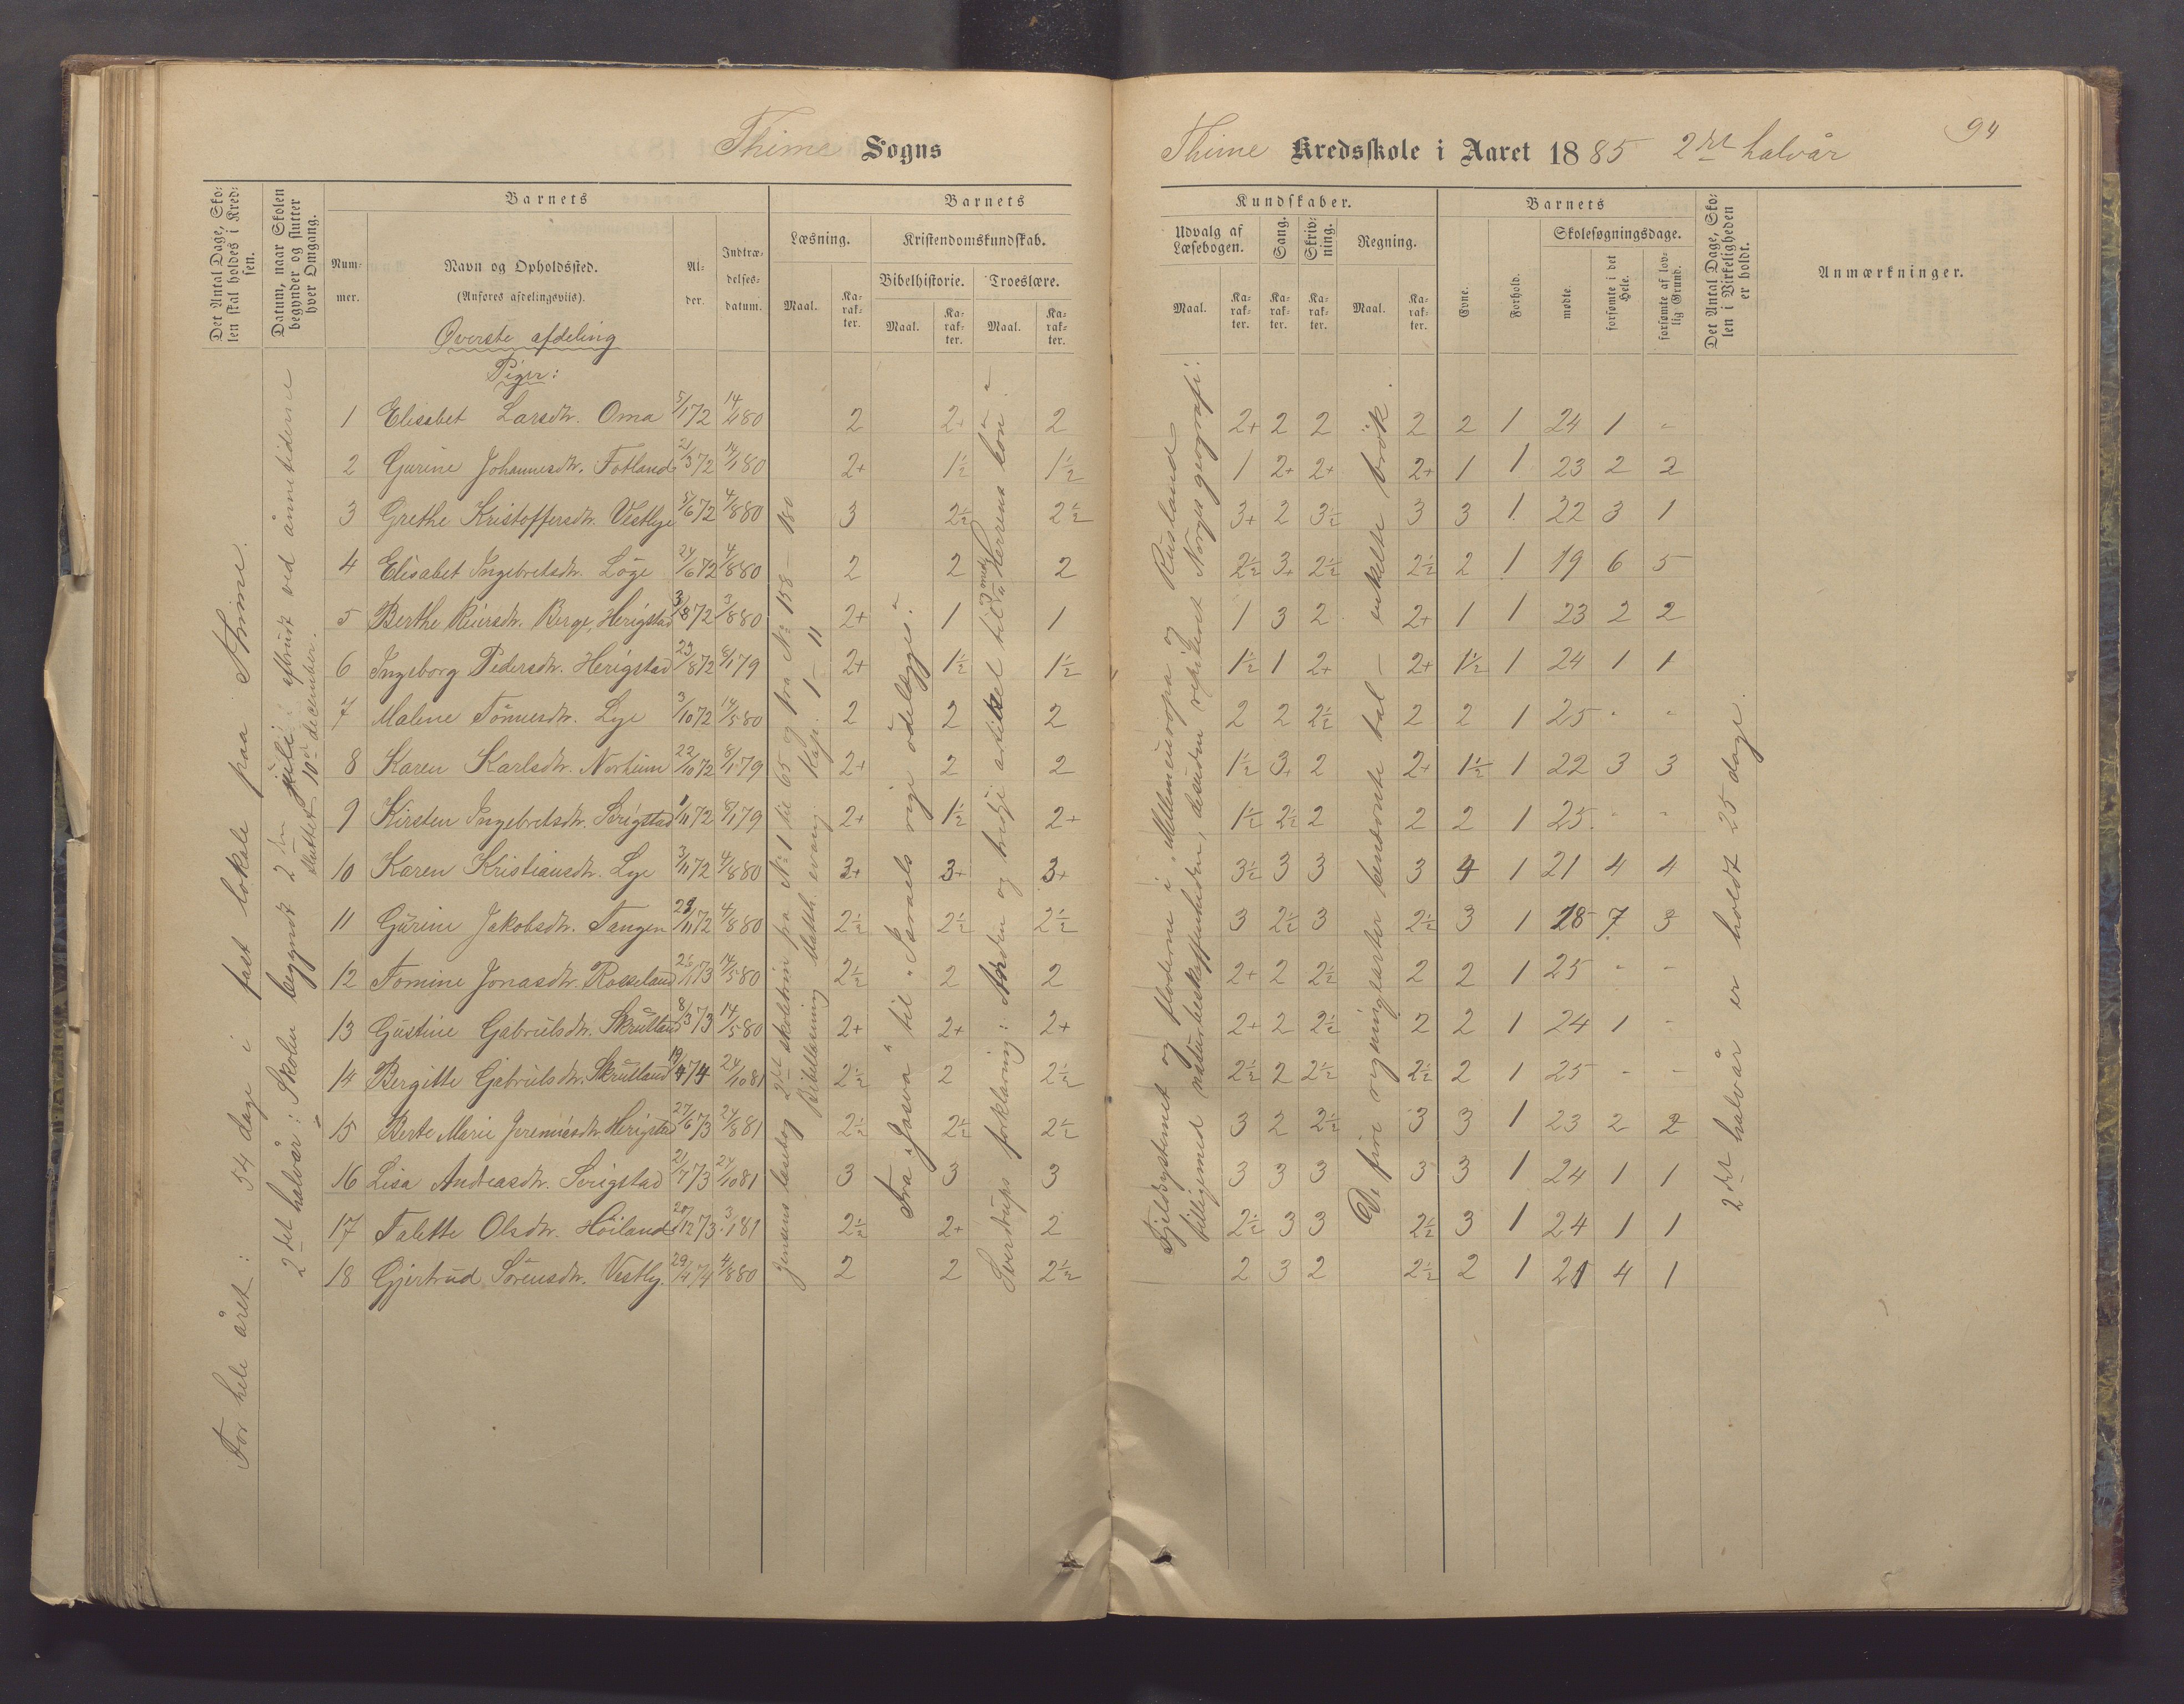 Thime Sogns
Det Antal Dage, Skolen skal holdes i Kredsen.
Datum, naar Skolen begynder og slutter hver Omgang.
Barnets
Nummer.
Navn og Opholdssted.
(Anføres afdelingsviis).
Alder.
Indtrædelsesdatum.
Læsning.
Maal.
Karakter.
Barnets
Kristendomskundskab.
Bibelhistorie.
Maal.
Karakter.
Troeslære.
Maal.
Karakter.
Øverste afdeling
Piger:
1 Elisabet Larsdtr. Oma 5/1 72 14/4 80 2 2+ 2
2 Gurine Johannesdtr. Fotland 21/3 72 80 2+ 1½ 1½
3 Grethe Kristoffersdtr. Vestlye 5/6 72 4/8 80 3 2½ 2½
4 Elisabet Ingebretsdtr. Løge 24/6 72 4/8 80 2 2 2
5 Berthe Reiersdtr. Berge, Herigstad 3/8 72 3/8 80 2+ 1 1
6 Ingeborg Pedersdtr. Herigstad 23/8 72 8/1 79 2+ 1½ 1½
7 Malene Tønnesdtr. Lye 3/10 72 14/5 80 2 2 2
8 Karen Karlsdtr. Norheim 22/10 72 8/1 79 2+ 2 2
9 Kirsten Ingebretsdtr. Serigstad 1/11 72 8/1 79 2+ 1½ 2+
10 Karen Kristiansdtr. Lye 3/11 72 4/8 80 3+ 3+ 3+
11 Gurine Jakobsdtr. Tangen 29/11 72 4/8 80 2½ 2½ 2½
12 Tomine Jonasdtr. Rosseland 26/1 73 14/5 80 2½ 2 2
13 Gustine Gabrielsdtr. Skrutland 8/3 73 14/5 80 2+ 2+ 2+
14 Bergitte Gabrielsdtr. Skrutland 19/4 74 24/10 81 2½ 2 2½
15 Berte Marie Jeremiasdtr. Herigstad 27/6 73 24/8 81 2½ 2½ 2½
16 Lisa Andreasdtr. Serigstad 21/7 73 24/10 81 3 3 3
17 Talette Olsdtr. Høiland 20/12 73 3/1 81 2½ 2+ 2
18 Gjertrud Sørensdtr. Vestly. 29/4 74 4/8 80 2 2 2½
For hele året: 54 dage i fast lokale paa Thime.
2det halvår: Skolen begyndt 2den juli; afbrudt ved ånnetiderne
sluttet 10de december.
Jensens læsebog 2det skoletrin fra № 1 til 65 og fra № 158 – 180
Bibellæsning Matth. evang. Kap. 1 – 11
Fra „Josva“ til „Israels rige ødelægges“.
Sverdrups forklaring: Anden og tredje artikel til „Herrens bøn“
med
Thime Kredsskole i Aaret 1885 2det halvår
94
Kundskaber.
Udvalg af Læsebogen.
Maal.
Karakter.
Sang.
Karakter.
Skrivning.
Karakter.
Regning.
Maal.
Karakter.
Barnets
Evne.
Forhold.
Skolesøgningsdage.
mødte.
forsømte i det Hele.
forsømte af lovlig Grund.
Det Antal Dage, Skolen i Virkeligheden er holdt.
Anmærkninger.
2+ 2 2 2 2 1 24 1 -
1 2+ 2+ 2+ 1 1 23 2 2
3+ 2 3½ 3 3 1 22 3 1
2½ 3+ 2½ 2½ 2 1 19 6 5
1 3 2 2+ 1 1 23 2 2
1½ 1 2+ 2+ 1½ 1 24 1 1
2 2 2½ 2 2 1 25 - -
1½ 3+ 2 2+ 1½ 1 22 3 3
1½ 2½ 2 2 2 1 25 - -
3½ 3 3 3 4 1 21 4 4
3 2½ 3 2½ 3 1 18 7 3
2+ 2 2½ 2 2 1 25 - -
2+ 2 2½ 2 2 1 24 1 -
2½ 2 2½ 2½ 2 1 25 - -
3 2 2½ 3 3 1 23 2 2
3 3 3 3 3 1 24 1 1
2½ 3 3 2½ 3 1 24 1 1
2 3 2 2½ 2 1 21 4 1
Fjeldsystemet og floderne i Mellemeuropa og Rusland
tilligemed naturbeskaffenheden, desuden repeteret Norges geografi.
De fire regningsarter benævnte tal – enkelte brøk.
2det halvår er holdt 25 dage.